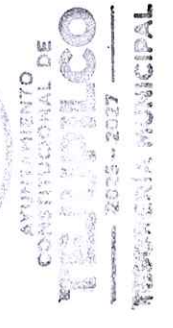 AYUNTAMIENTO
CONSTITUCIONAL DE
TEJUPILCO
2025 - 2027
TESORERÍA MUNICIPAL